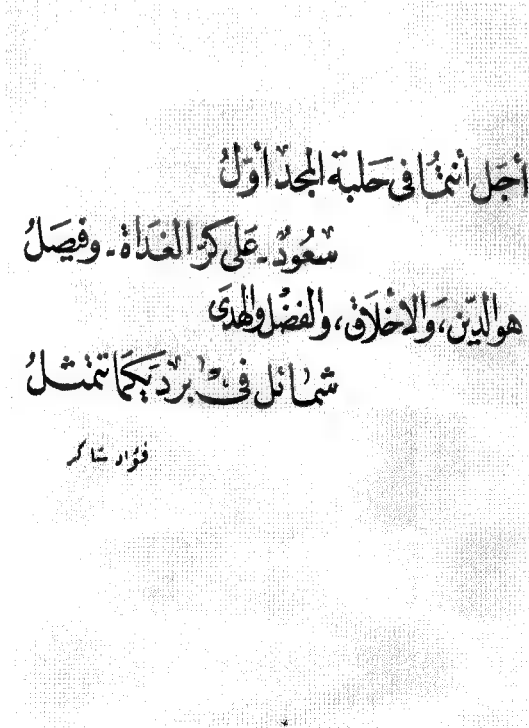 أجَل أنتمُا في حَلبة المجد أوّلُ
سعُودٌ - عَلى كرّ الغدَاة - وفيصَلُ
هو الدّين، وَالاخلاَق، والفضْل والهدَى
شمائل في برديَكمَا تتمثلُ
فؤاد شاكر